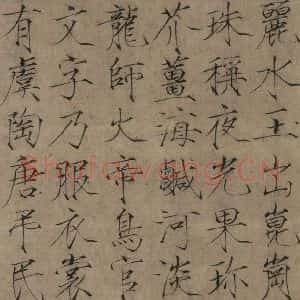 麗水玉出崑崗
珠稱夜光果珎
芥薑海鹹河淡
龍師火帝鳥官
文字乃服衣裳
有虞陶唐弔民
Shufawang.CN